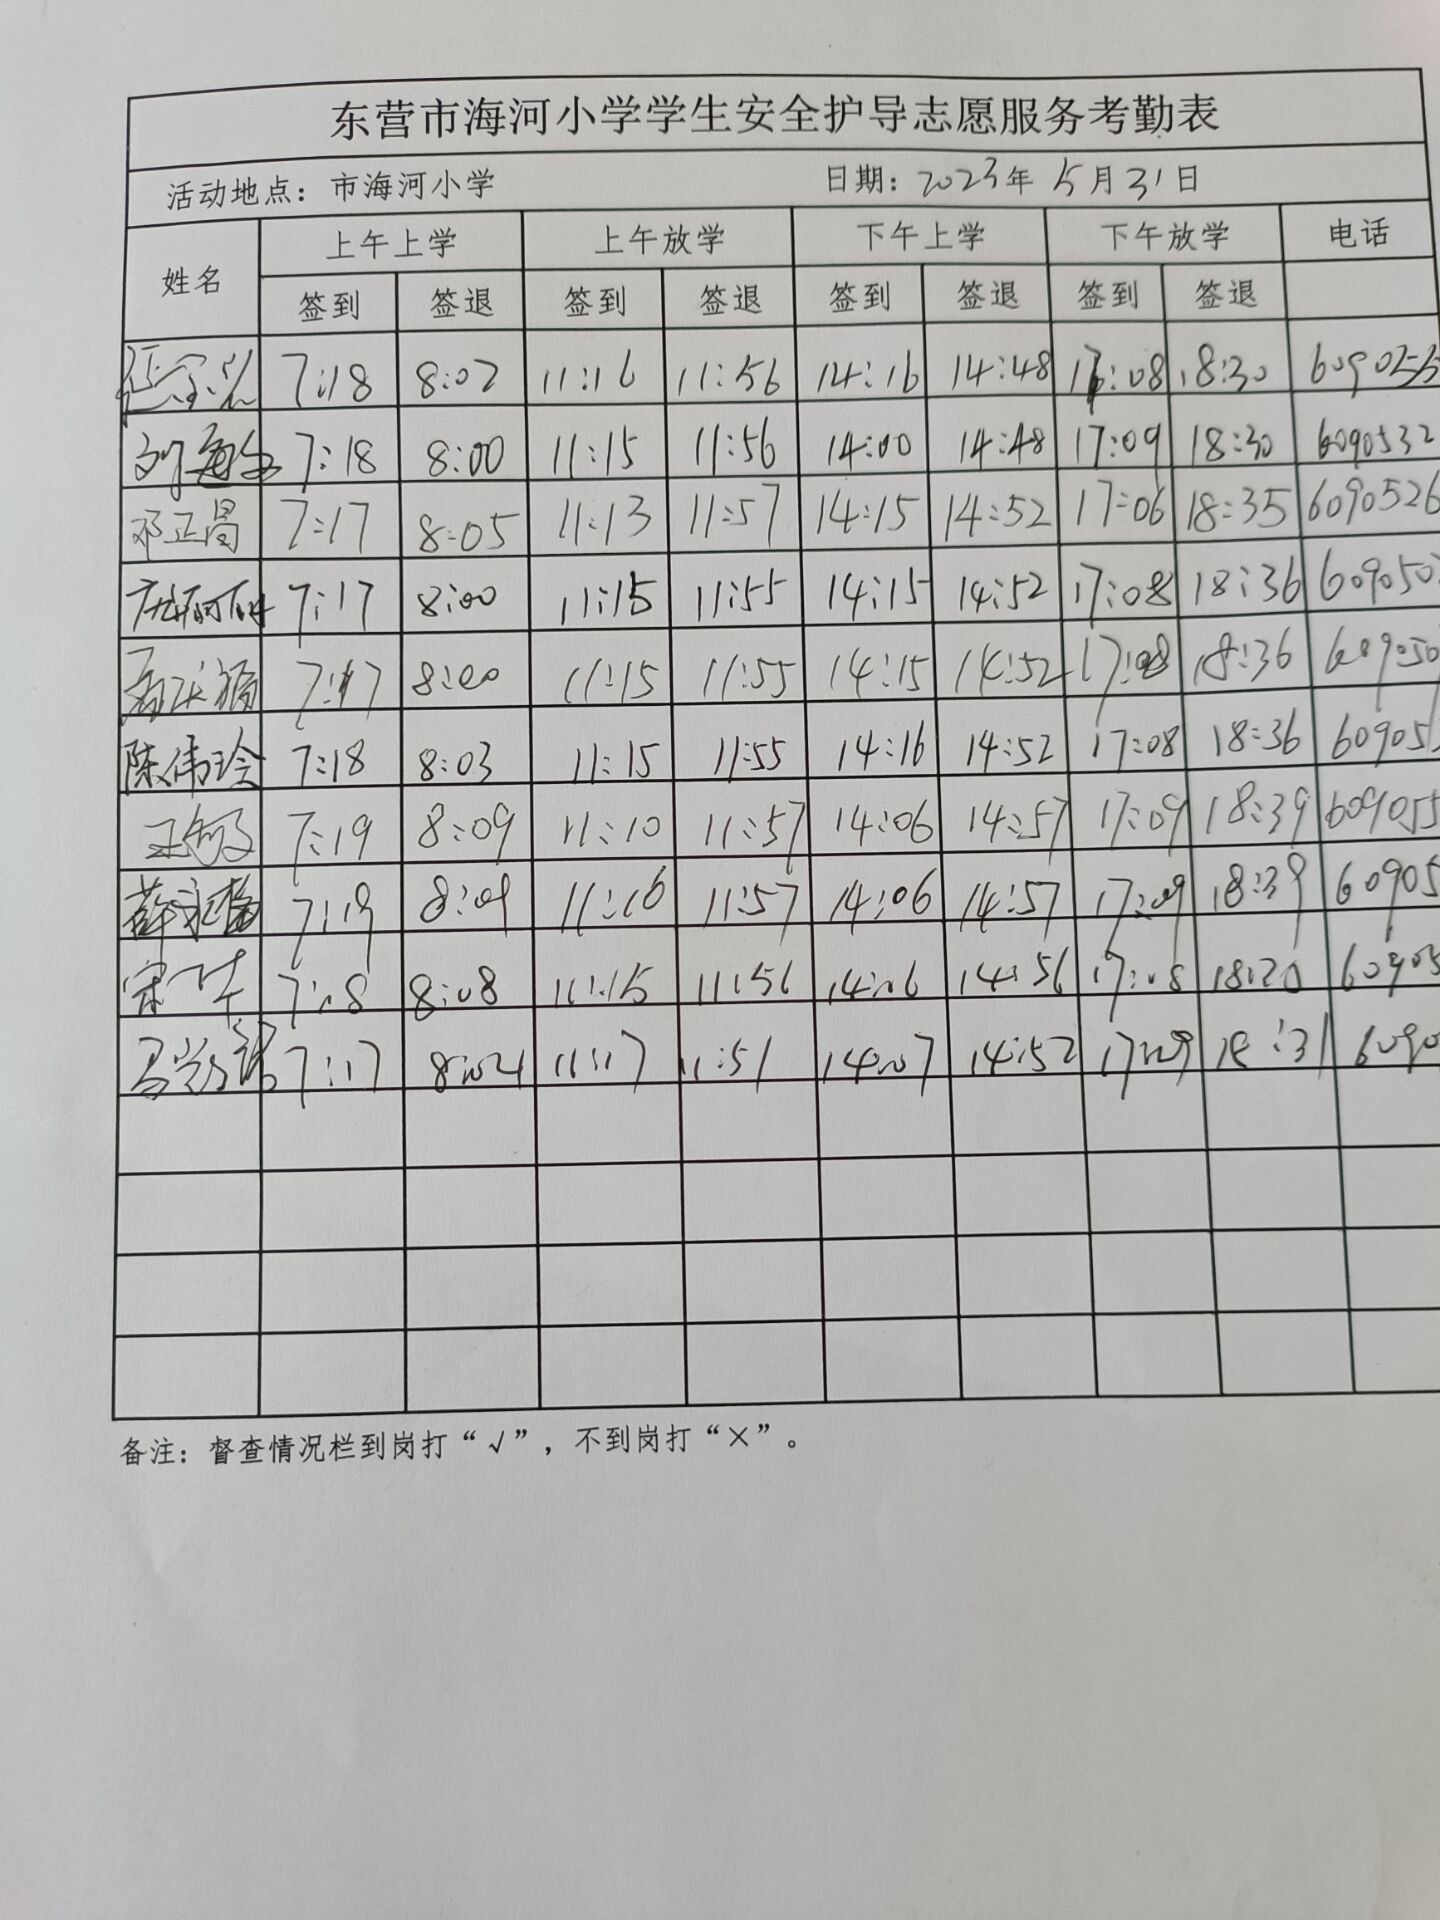 东营市海河小学学生安全护导志愿服务考勤表
活动地点：市海河小学 日期：2023年 5月31日
姓名 上午上学 上午放学 下午上学 下午放学 电话
签到 签退 签到 签退 签到 签退 签到 签退
7:18 8:02 11:16 11:56 14:16 14:48 17:08 18:30
7:18 8:00 11:15 11:56 14:00 14:48 17:09 18:30 6090532
邓正昌 7:17 8:05 11:13 11:57 14:15 14:52 17:06 18:35 6090526
7:17 8:00 11:15 11:55 14:15 14:52 17:08 18:36 609050
7:17 8:00 11:15 11:55 14:15 14:52 17:08 18:36 609050
陈伟玲 7:18 8:03 11:15 11:55 14:16 14:52 17:08 18:36 609055
7:19 8:09 11:10 11:57 14:06 14:57 17:09 18:39 609055
薛永梅 7:19 8:09 11:16 11:57 14:06 14:57 17:09 18:39 60905
8:08 11:15 11:56 14:06 14:56 17:08 18:20 60905
7:17 11:17 11:51 14:07 14:52 17:09 18:31 6090
备注：督查情况栏到岗打“√”，不到岗打“×”。